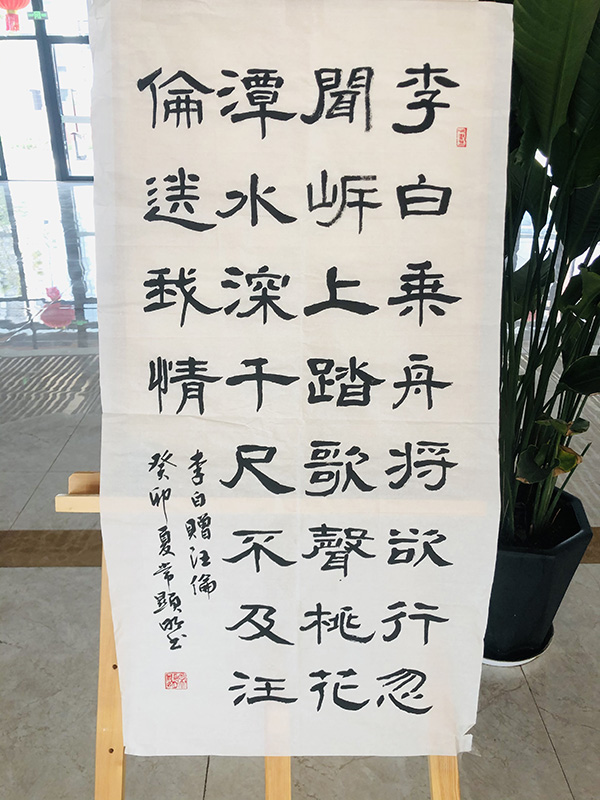 李白乘舟将欲行忽
聞岸上踏歌聲桃花
潭水深千尺不及汪
倫送我情
李白贈汪倫
癸卯夏常顯明书